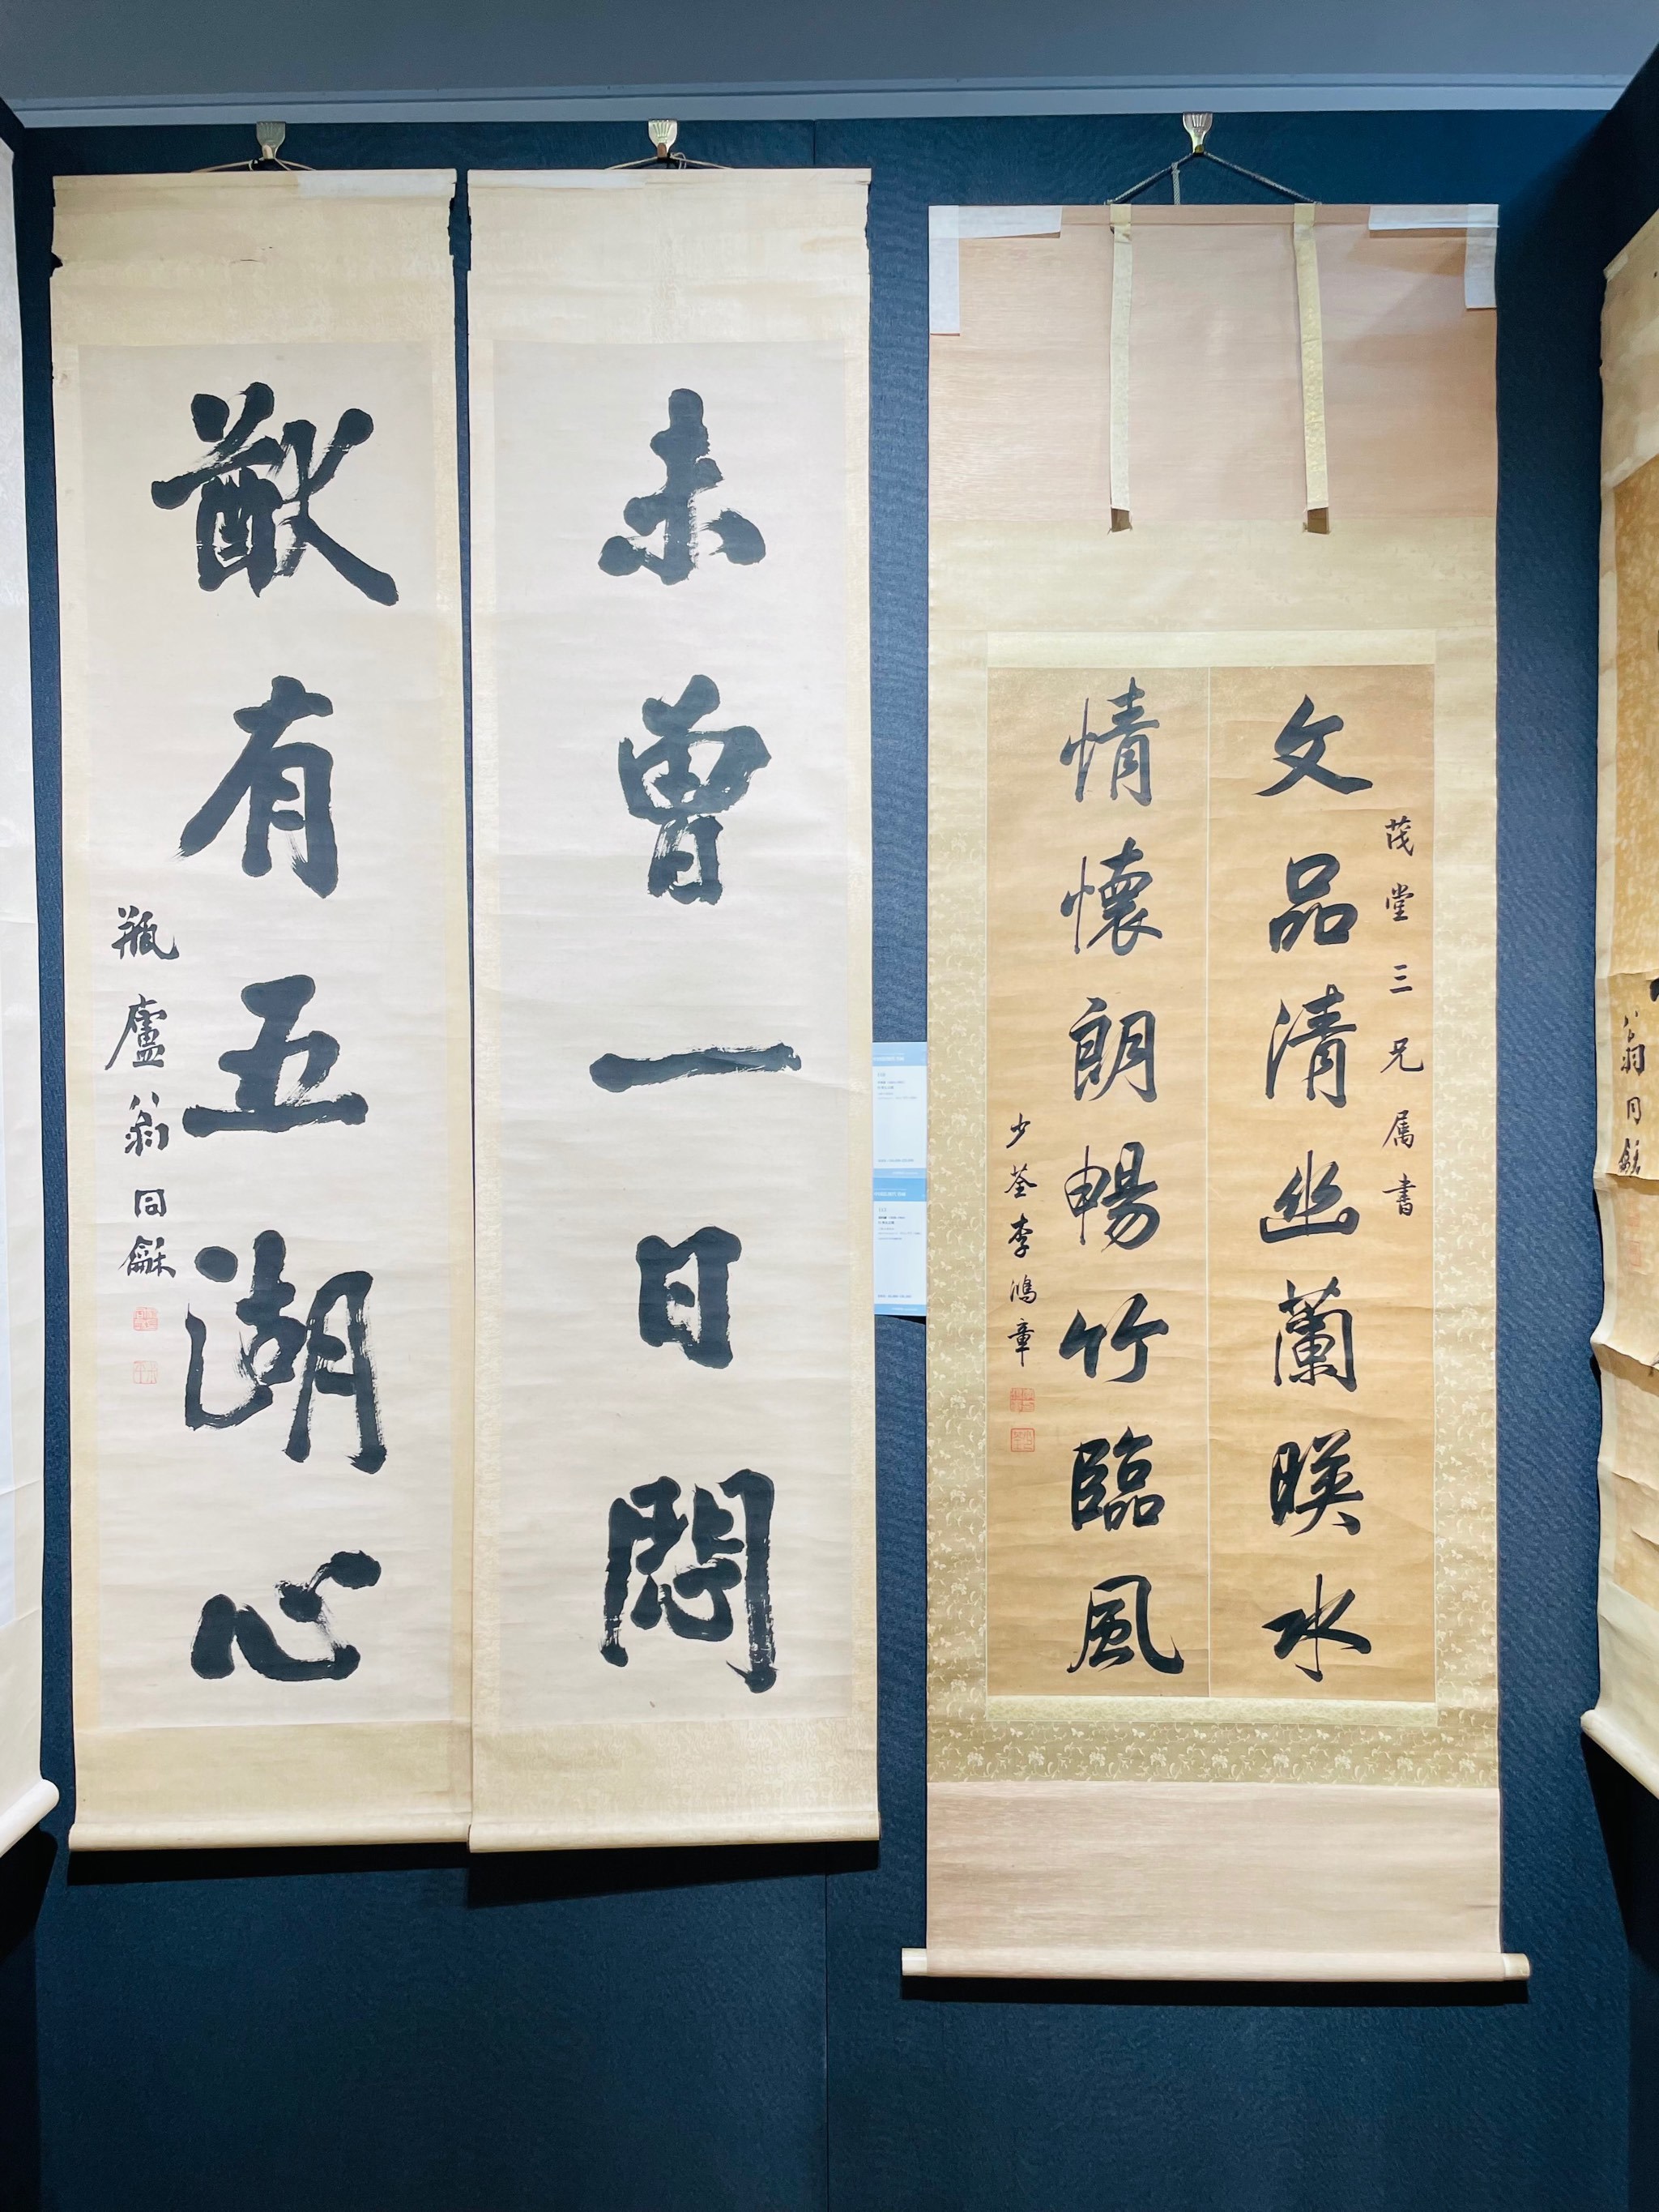 茂堂三兄属書
文品清幽蘭暎水
情懷朗暢竹臨風
少荃李鴻章
未曾一日悶
猷有五湖心
瓶廬翁同龢
翁同龢